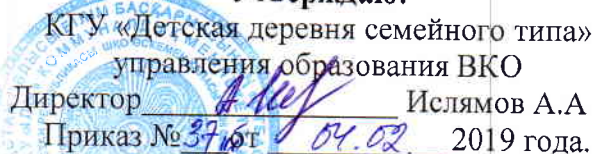 КГУ «Детская деревня семейного типа»
управления образования ВКО
Директор Ислямов А.А
Приказ №37 от 04.02 2019 года.